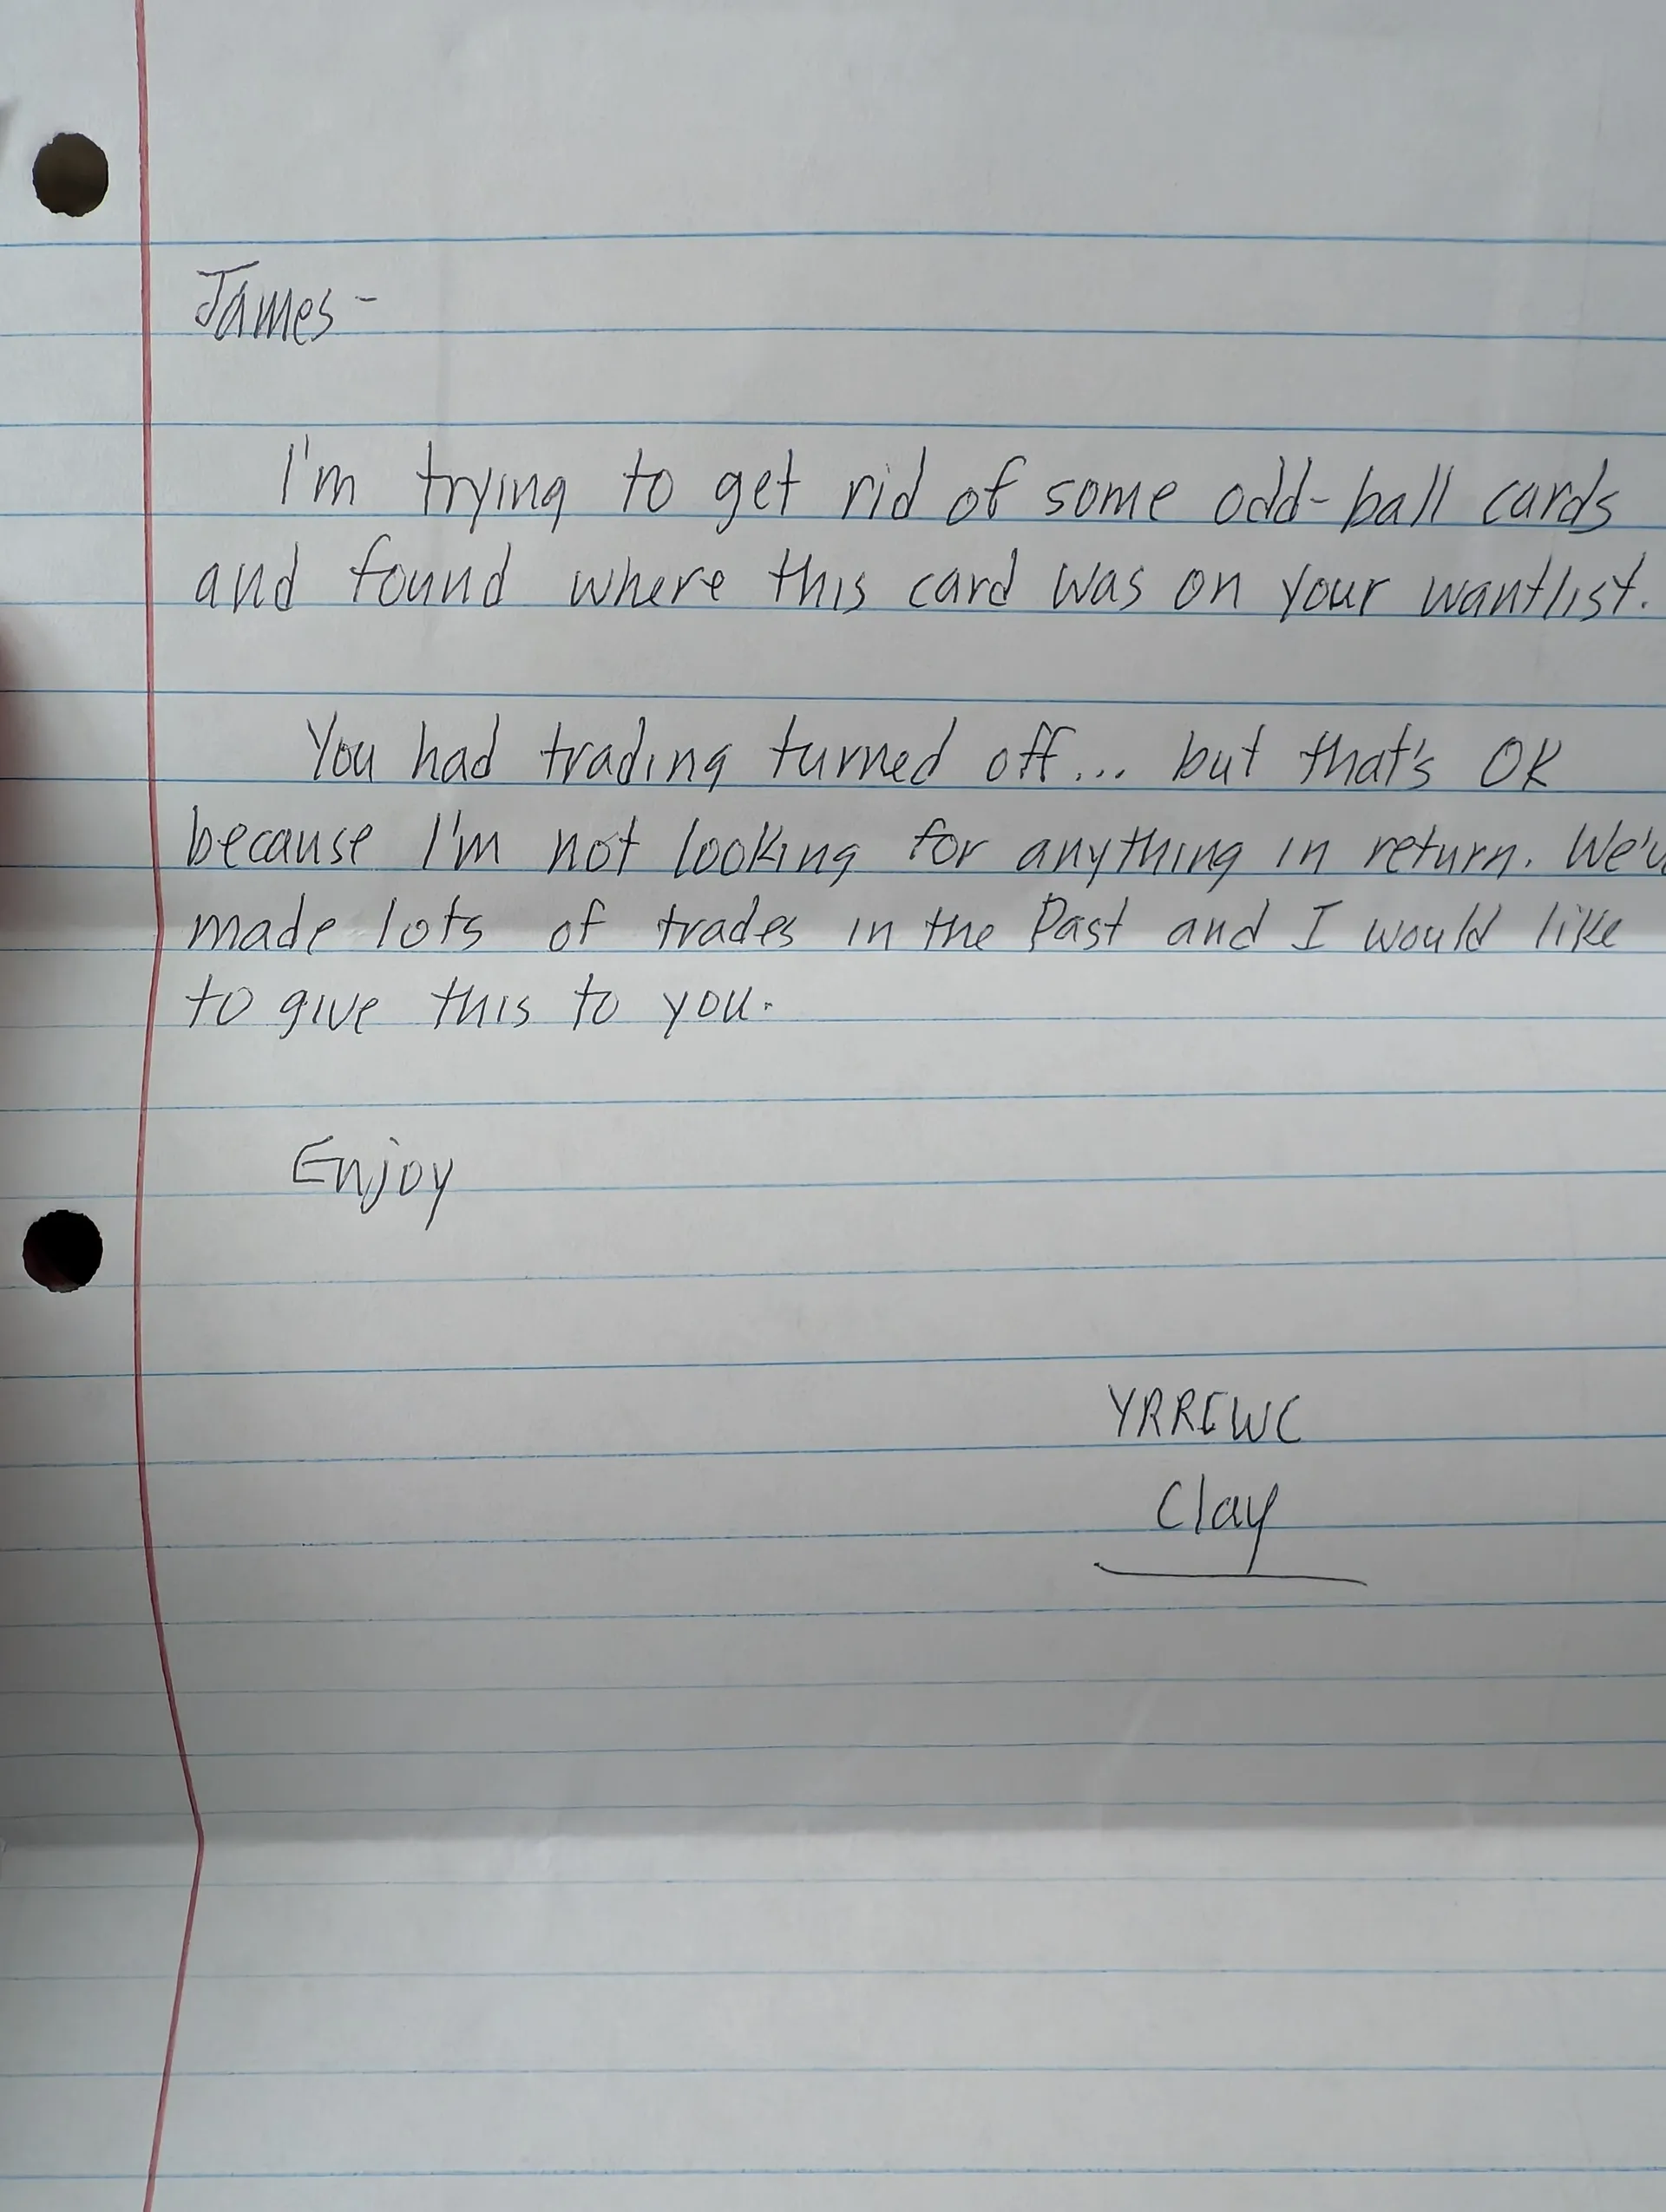 James-
I'm trying to get rid of some odd-ball cards
and found where this card was on your wantlist.
You had trading turned off... but that's OK
because I'm not looking for anything in return.
made lots of trades in the Past and I would like
to give this to you.
Enjoy
YRREWC
Clay